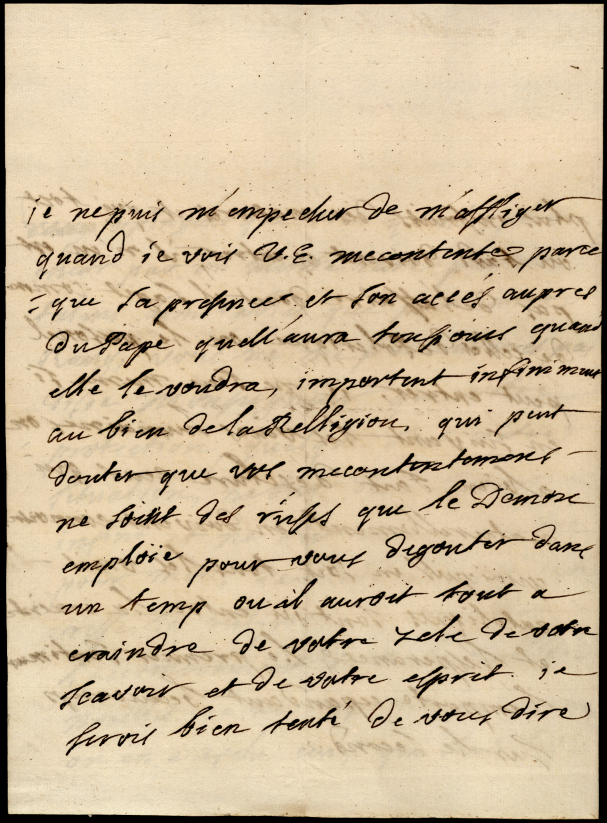 je nepuis m'empecher de m'affliger
quand ie vois V.E. mecontente parce
= que sa presence et son accés aupres
du Pape quell'aura tousiours quand
elle le voudra, importent infiniment
au bien de la Relligion, qui peut
douter que vos mecontentemens
ne soint des ruses que le Demon
emploïe pour vous degouter dans
un temp ou il auroit tout a
craindre de votre zele de votre
scavoir et de votre esprit. ie
serois bien tenté de vous dire